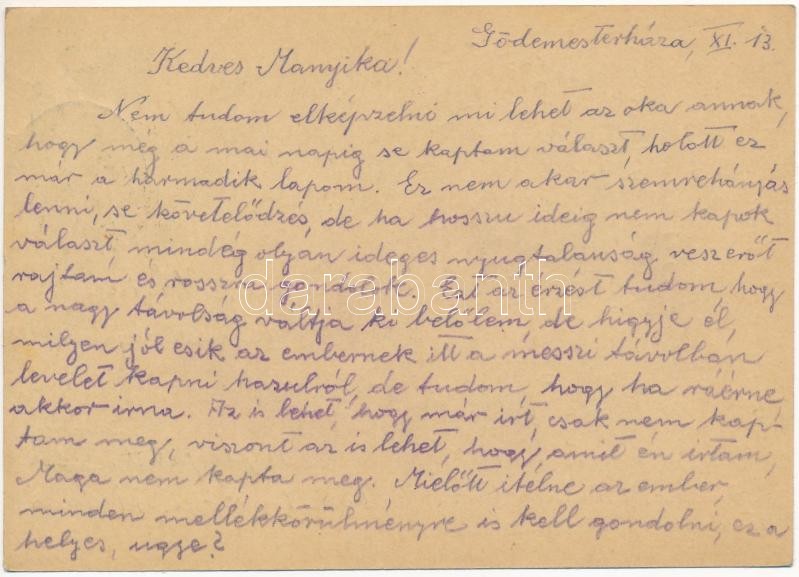 Gödemesterháza, XI. 13.
Kedves Manyika!
Nem tudom elképzelni mi lehet az oka annak,
hogy még a mai napig se kaptam választ, holott ez
már a harmadik lapom. Ez nem akar szemrehányás
lenni, se követelődzés, de ha hosszu ideig nem kapok
választ, mindég olyan ideges nyugtalanság vesz erőt
rajtam és rosszra gondolok. Ezt az érzést tudom, hogy
a nagy távolság váltja ki belőlem, de higyje el,
milyen jól esik az embernek itt a messzi távolban
levelet kapni hazulról, de tudom, hogy ha ráérne
akkor irna. Az is lehet, hogy már irt, csak nem kap-
tam meg, viszont az is lehet, hogy amit én irtam,
Maga nem kapta meg. Mielőtt itélne az ember,
minden mellékkörülményre is kell gondolni, ez a
helyes, ugye?
darabanth